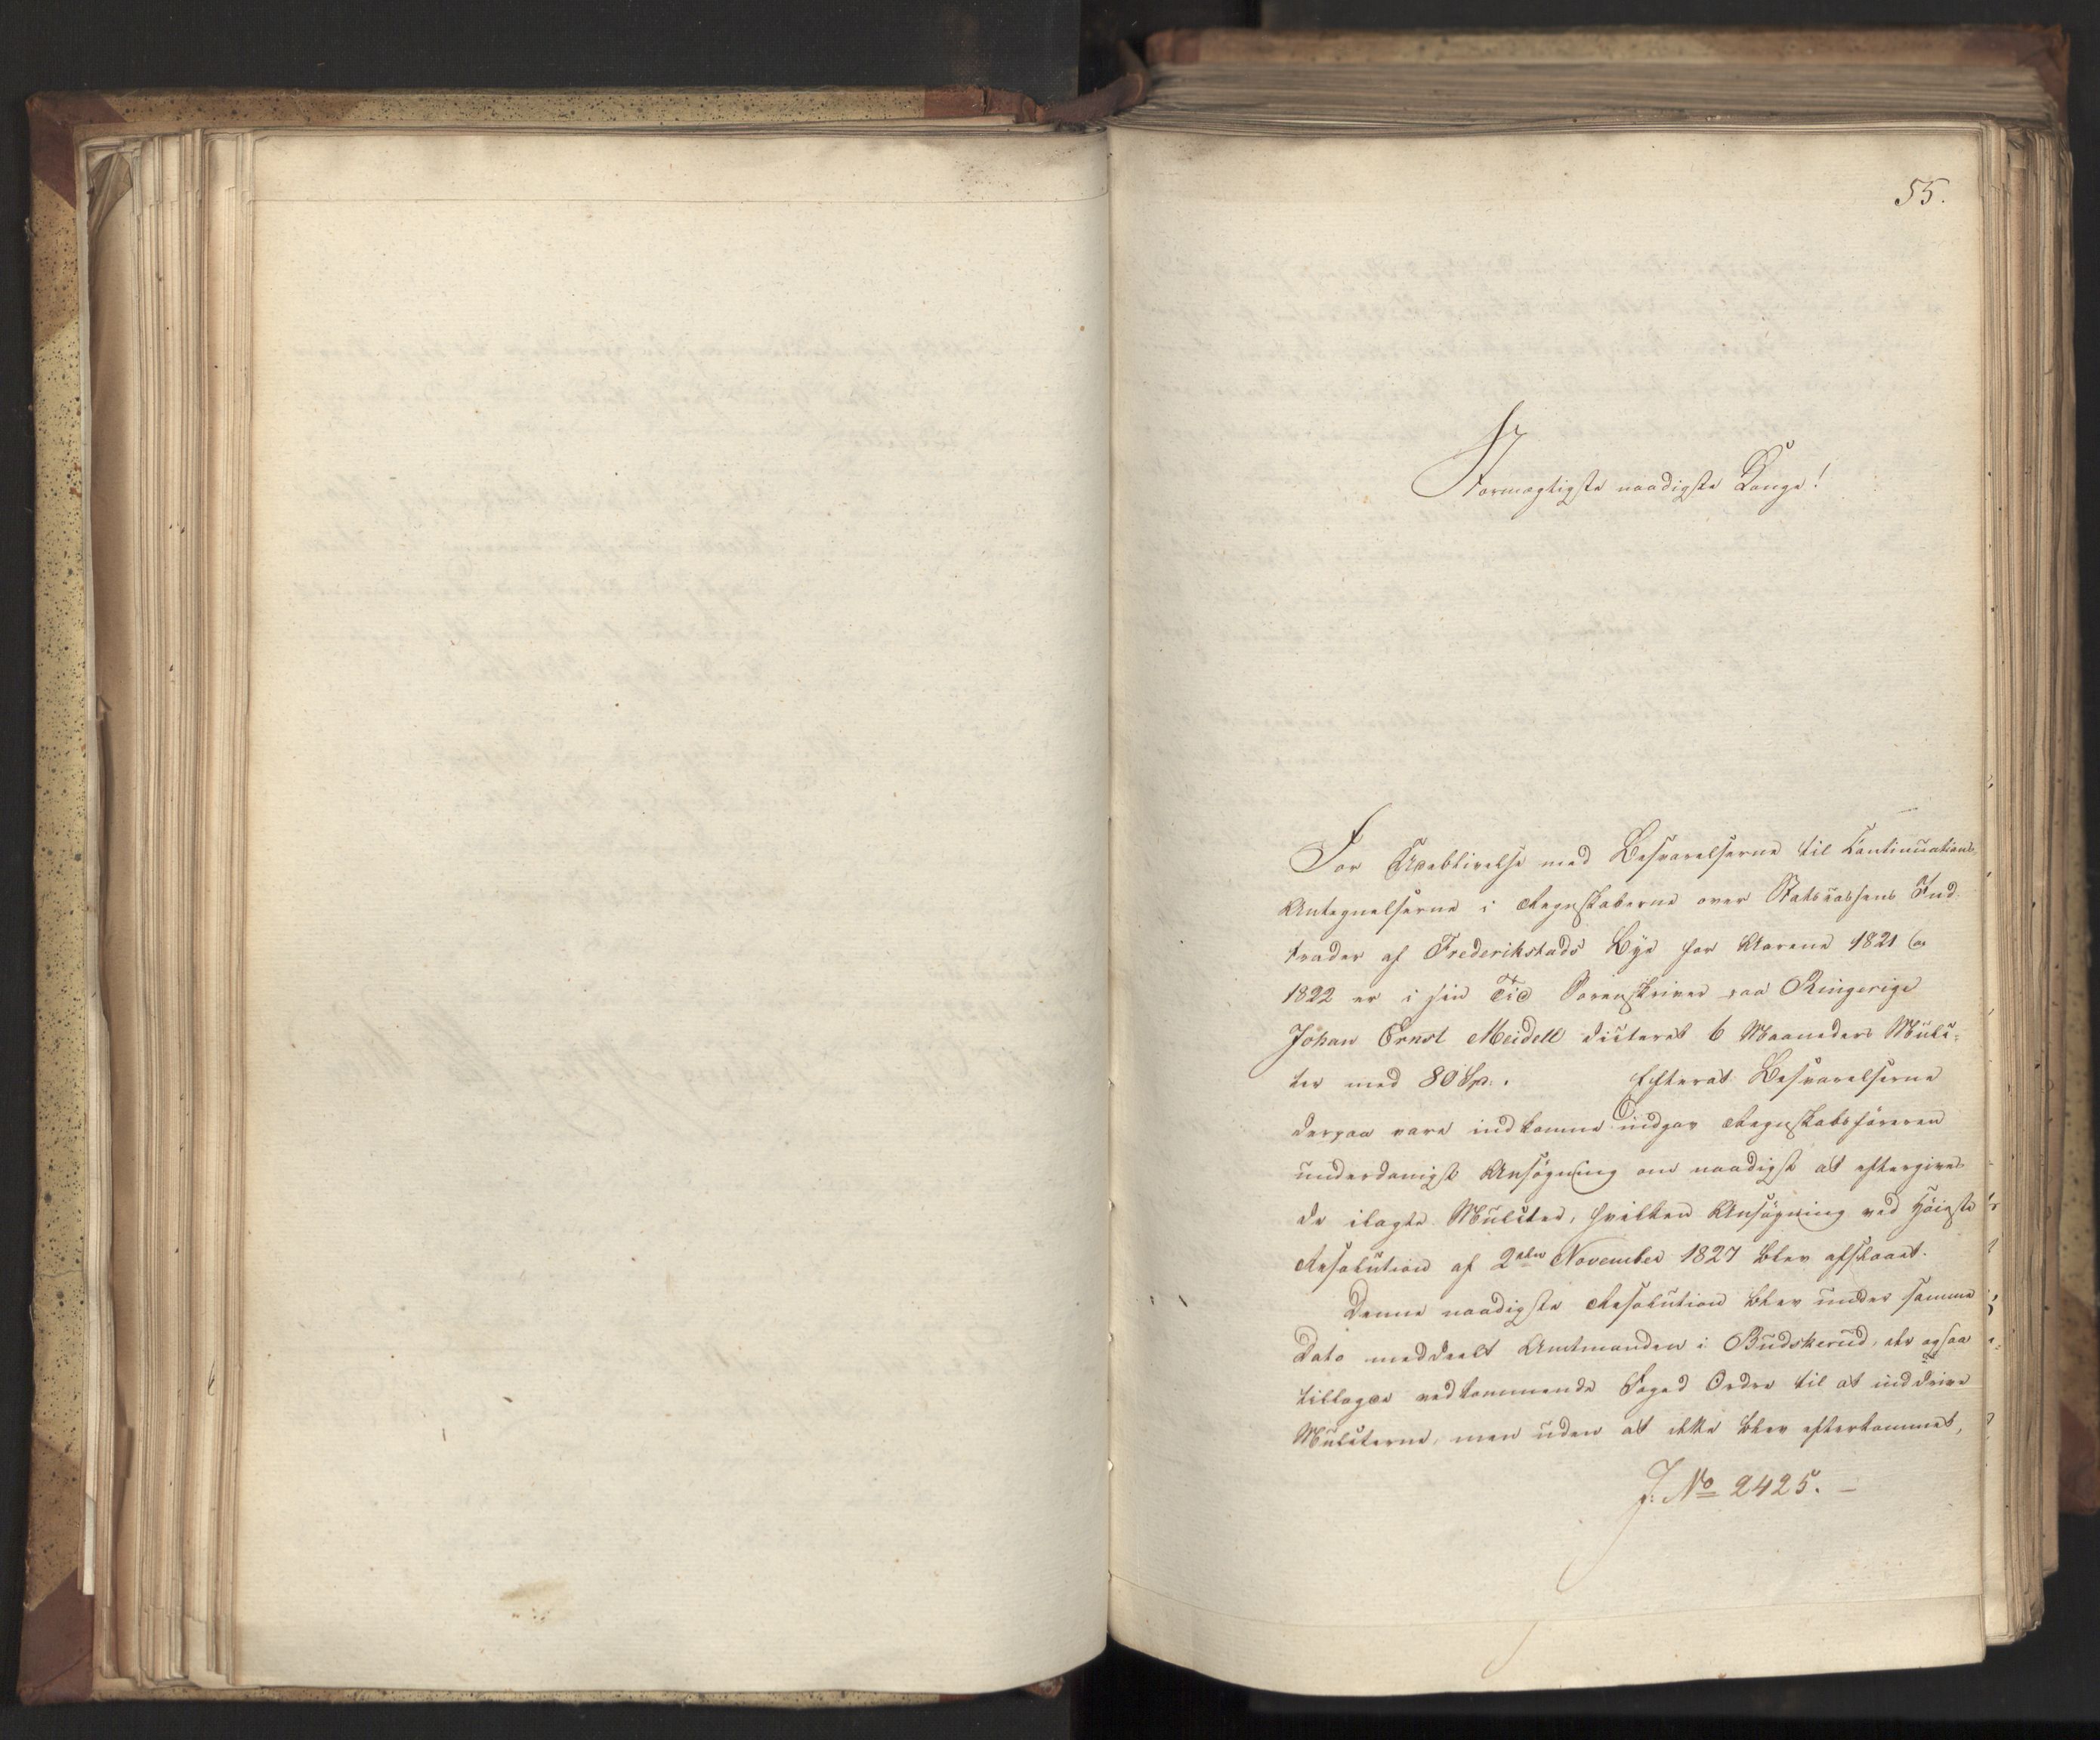 55.
Stormægtigste naadigste Konge!
For Udeblivelse med Besvarelserne til Continuations
Antegnelserne i Regnskaberne over Statscassens Ind-
trader af Frederikstads Bye for Aarene 1821 og
1822 er i sin Tid Sorenskriver paa Ringerige
Johan Ernst Meidell dicteret 6 Maaneders Mulc-
ter med 80 Spd. Efterat Besvarelserne
derpaa vare indkomne indgav Regnskabsføreren
underdanigst Ansøgning om naadigst at eftergives
de ilagte Mulcter, hvilken Ansøgning ved Høieste
Resolution af 2den November 1827 blev afslaaet.
Denne naadigste Resolution blev under samme
Dato meddeelt Amtmanden i Budskerud, der ogsaa
tillagde vedkommende Foged Ordre til at inddrive
Mulcterne, men uden at dette blev efterkommet,
J. No 2425. –